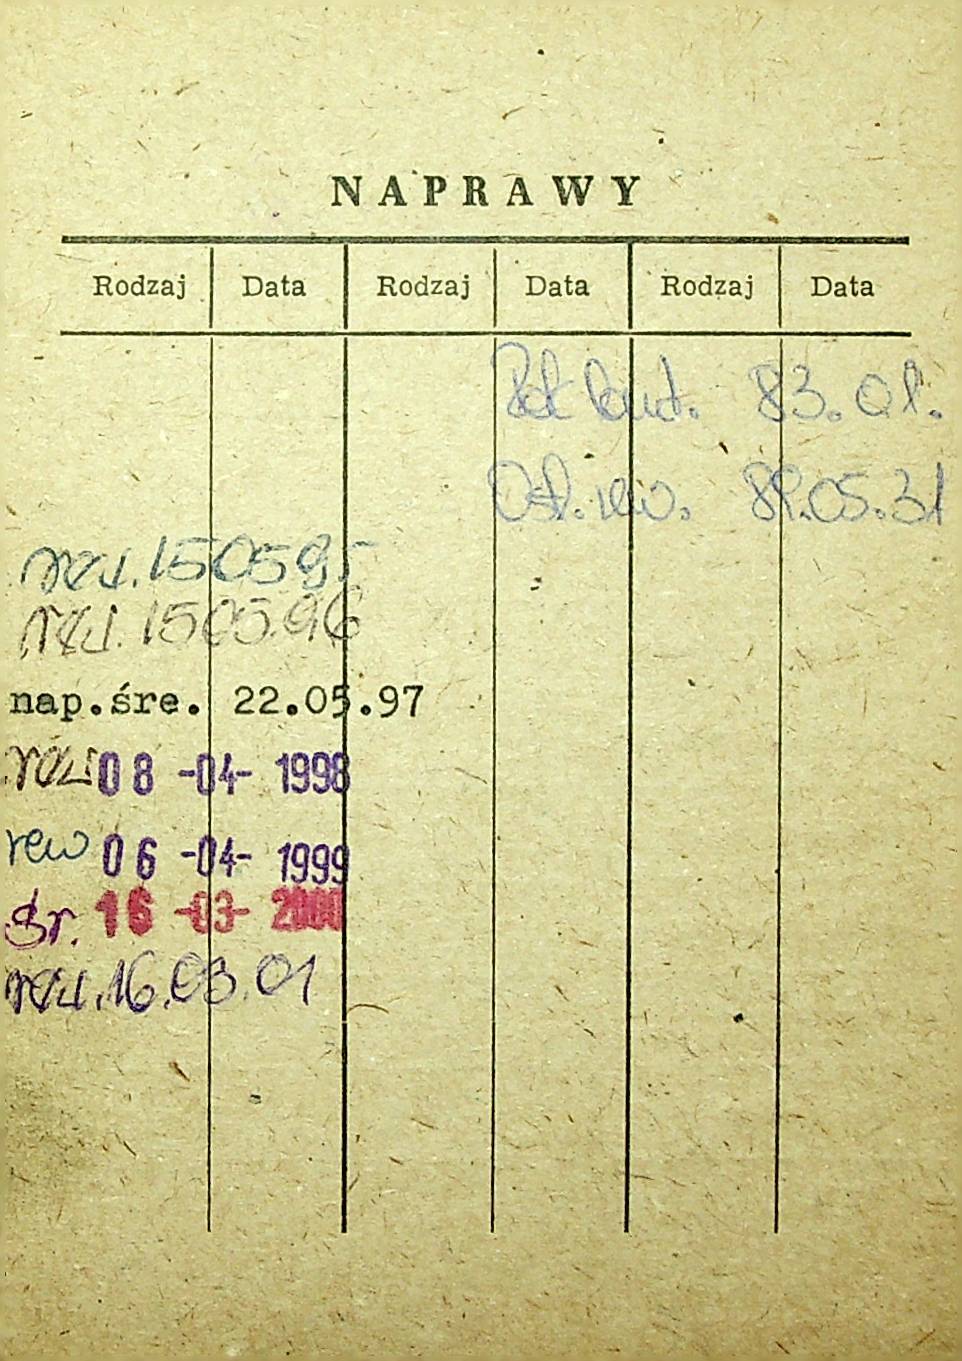 NAPRAWY
Rodzaj Data Rodzaj Data Rodzaj Data
Rok bud. 83.01.
Ost. rew. 89.05.31
rew. 150595
rew. 1505.96
nap.śre. 22.05.97
rew 08 -04- 1998
rew 06 -04- 1999
śr. 16 -03- 2000
rew. 16.03.01